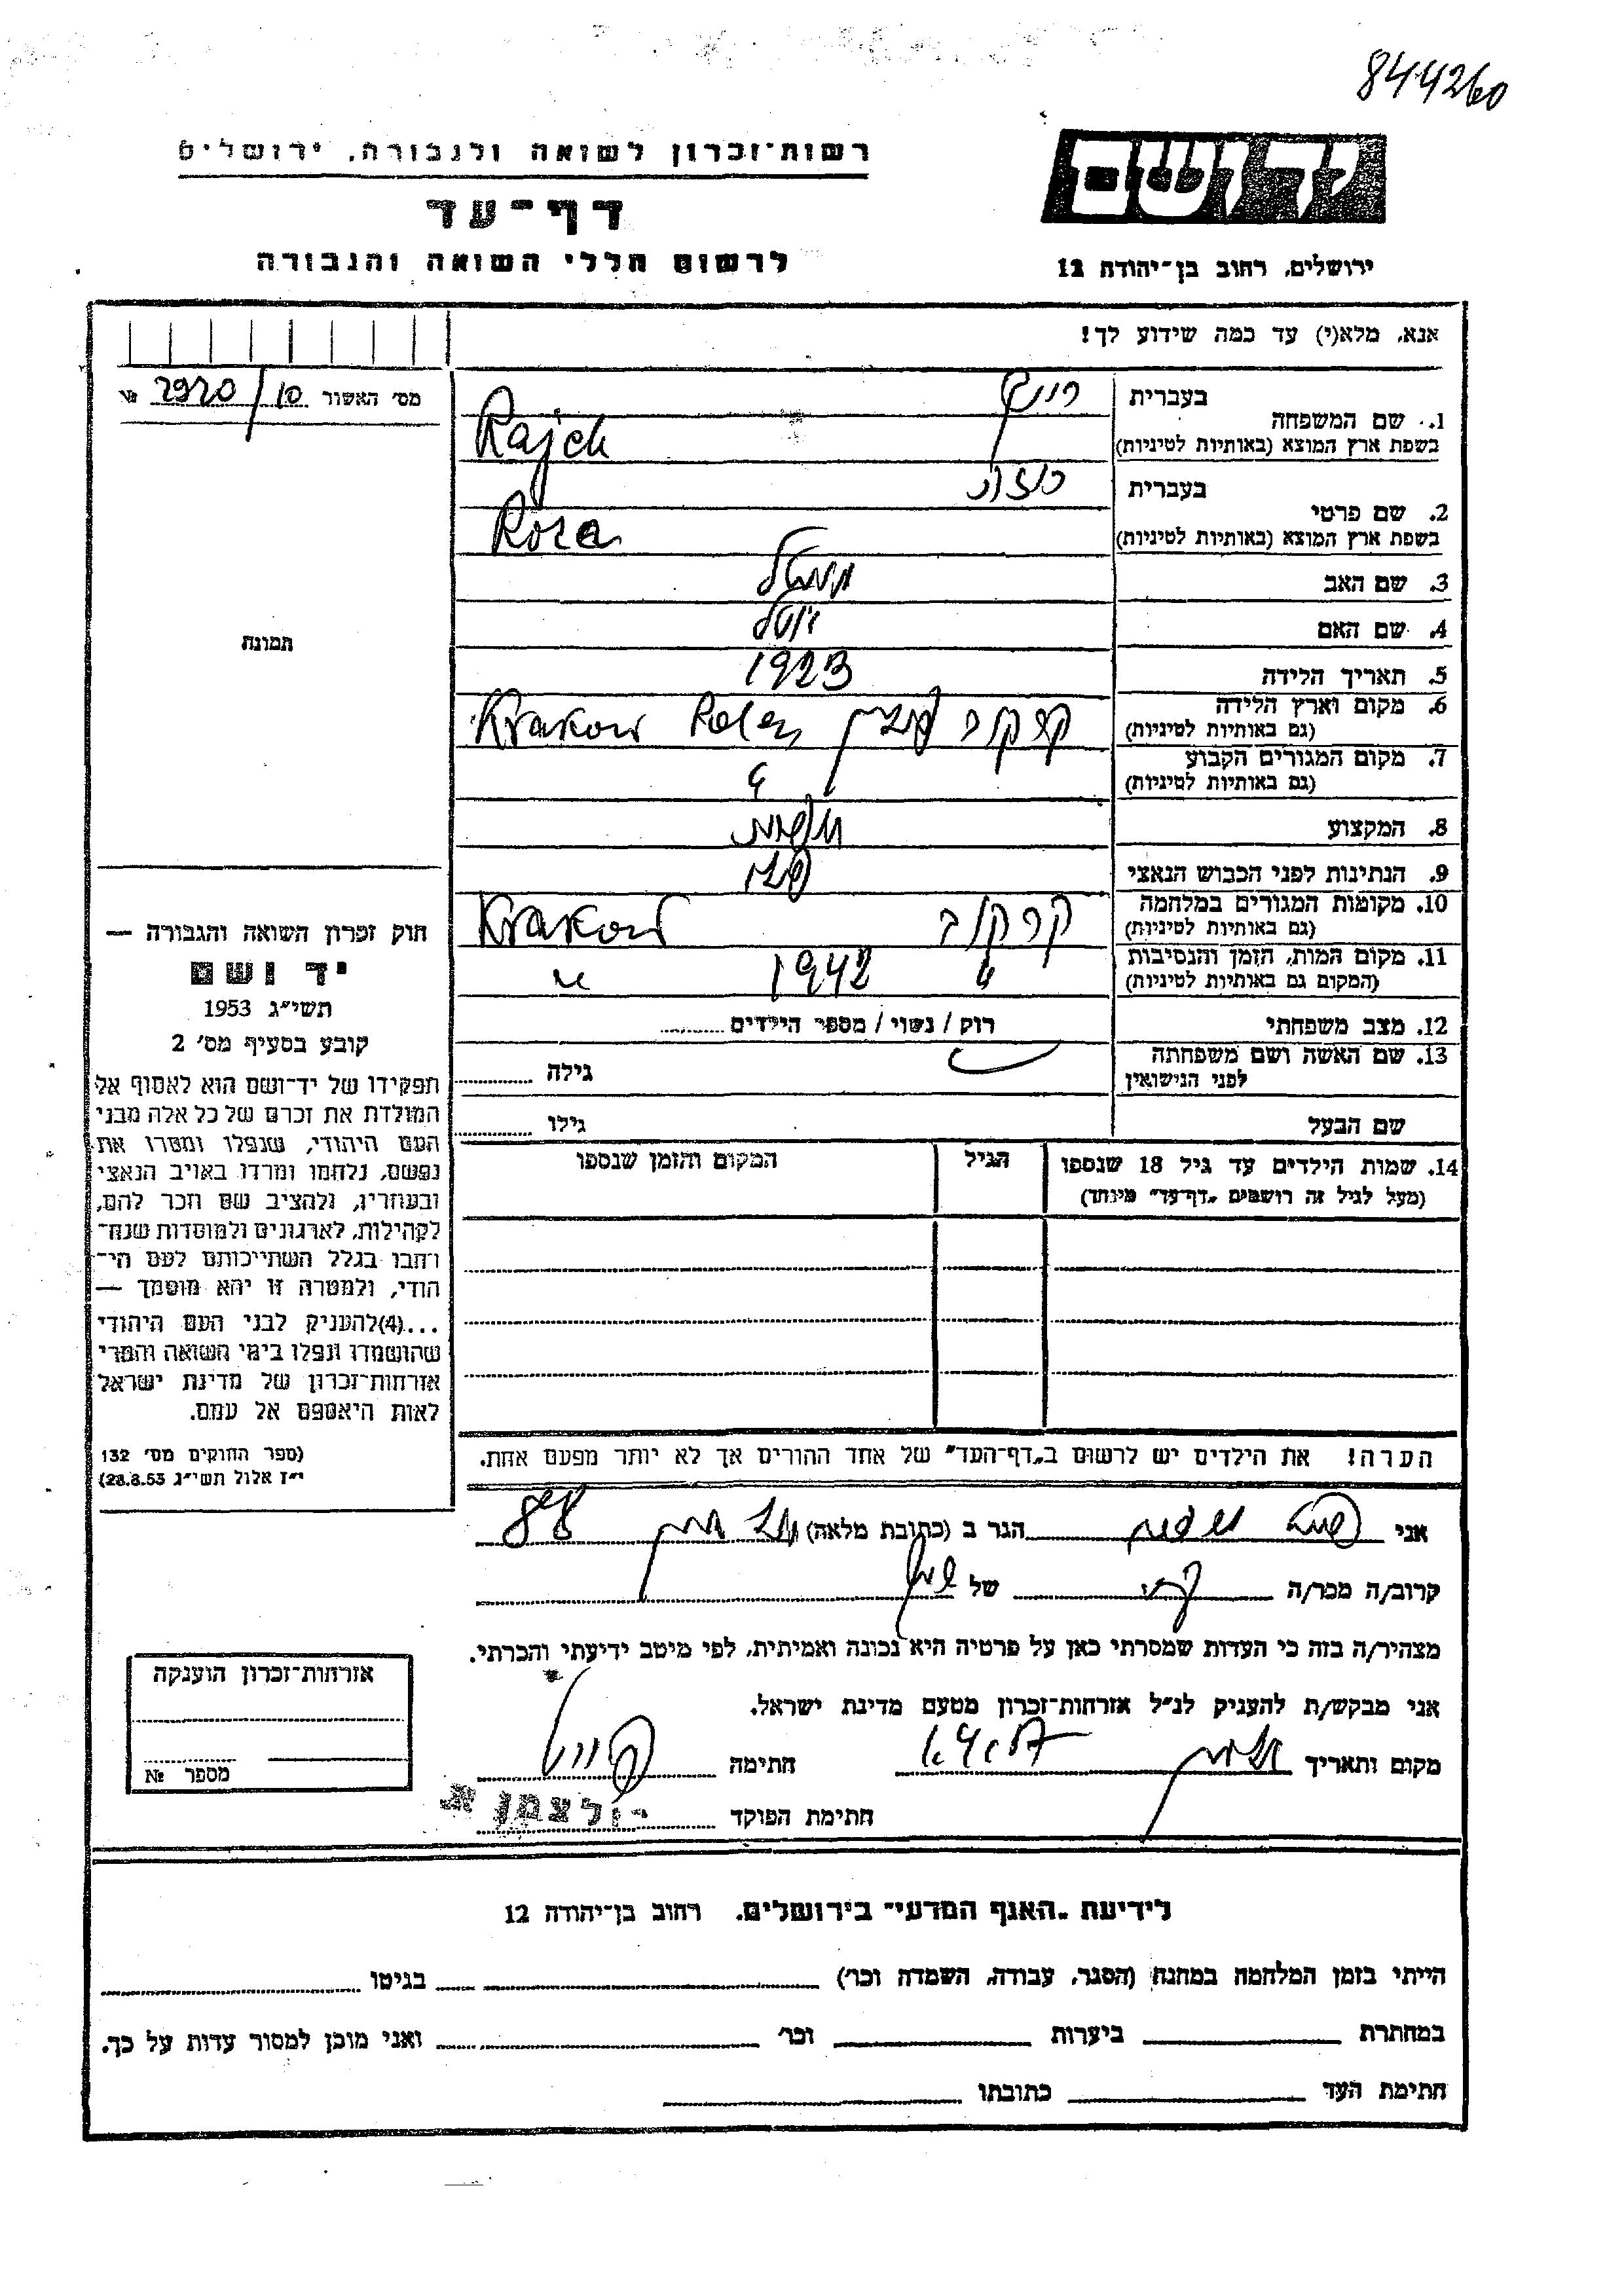 844260
רשות־זכרון לשואה ולגבורה, ירושלים
יד ושם
דף־עד
לרשום חללי השואה והגבורה
ירושלים, רחוב בן־יהודה 12
אנא, מלא(י) עד כמה שידוע לך!
מס׳ האשור 10/2920 №
בעברית רייך
1. שם המשפחה
בשפת ארץ המוצא (באותיות לטיניות) Rajch
בעברית רוזה
2. שם פרטי
בשפת ארץ המוצא (באותיות לטיניות) Róza
3. שם האב
4. שם האם
תמונה
5. תאריך הלידה 1923
6. מקום וארץ הלידה
(גם באותיות לטיניות) קרקוב פולין Krakow Polen
7. מקום המגורים הקבוע
(גם באותיות לטיניות)
8. המקצוע
9. הנתינות לפני הכבוש הנאצי
10. מקומות המגורים במלחמה
(גם באותיות לטיניות) קרקוב Krakow
11. מקום המות, הזמן והנסיבות
(המקום גם באותיות לטיניות) 1942
12. מצב משפחתי רוק / נשוי / מספר הילדים
13. שם האשה ושם משפחתה
לפני הנישואין גילה
שם הבעל גילו
14. שמות הילדים עד גיל 18 שנספו הגיל המקום והזמן שנספו
(מעל לגיל זה רושמים „דף־עד" מיוחד)
חוק זכרון השואה והגבורה —
יד ושם
תשי״ג 1953
קובע בסעיף מס׳ 2
תפקידו של יד־ושם הוא לאסוף אל
המולדת את זכרם של כל אלה מבני
העם היהודי, שנפלו ומסרו את
נפשם, נלחמו ומרדו באויב הנאצי
ובעוזריו, ולהציב שם וזכר להם,
לקהילות, לארגונים ולמוסדות שנח־
רבו בגלל השתייכותם לעם הי־
הודי, ולמטרה זו יהא מוסמך —
...(4)להעניק לבני העם היהודי
שהושמדו ונפלו בימי השואה והמרי
אזרחות־זכרון של מדינת ישראל
לאות היאספם אל עמם.
(ספר החוקים מס׳ 132
י״ז אלול תשי״ג 28.8.53)
הערה! את הילדים יש לרשום ב„דף־העד" של אחד ההורים אך לא יותר מפעם אחת.
אני הגר ב (כתובת מלאה)
קרוב/ה מכר/ה של
מצהיר/ה בזה כי העדות שמסרתי כאן על פרטיה היא נכונה ואמיתית, לפי מיטב ידיעתי והכרתי.
אני מבקש/ת להעניק לנ״ל אזרחות־זכרון מטעם מדינת ישראל.
מקום ותאריך חתימה
חתימת הפוקד
אזרחות־זכרון הוענקה
מספר №
לידיעת „האגף המדעי" בירושלים, רחוב בן־יהודה 12
הייתי בזמן המלחמה במחנה (הסגר, עבודה, השמדה וכו׳) בגיטו
במחתרת ביערות וכו׳ ואני מוכן למסור עדות על כך.
חתימת העד כתובתו